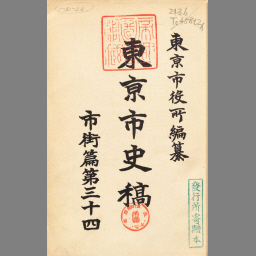 東京市役所編纂
東京市史稿
市街篇第三十四
發行所寄贈本